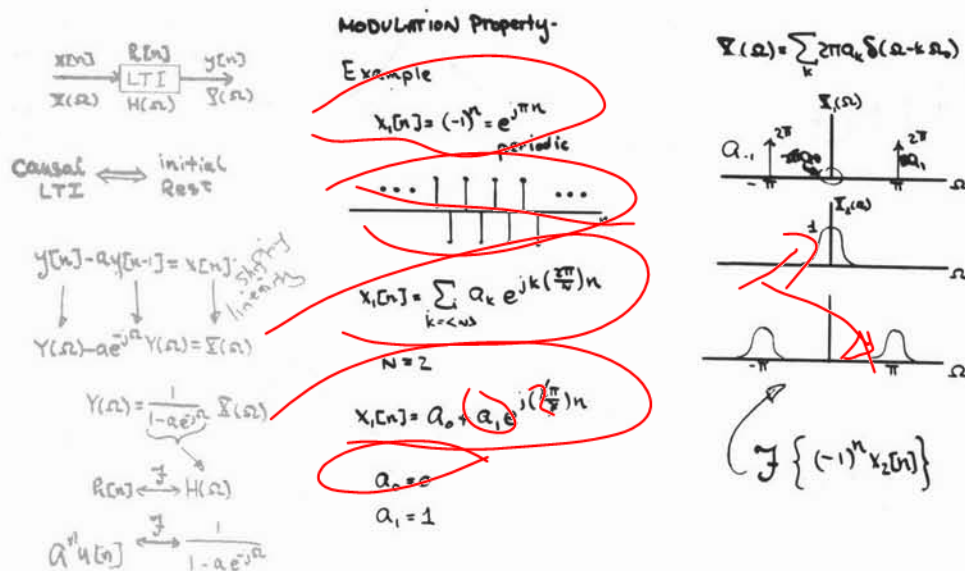 x[n] h[n] y[n]
LTI
X(Ω) H(Ω) Y(Ω)
Causal LTI ⟺ initial Rest
y[n]-ay[n-1]=x[n]
shifting
linearity
Y(Ω)-ae^{-jΩ}Y(Ω)=X(Ω)
Y(Ω)=\frac{1}{1-ae^{-jΩ}} X(Ω)
h[n] ⟷^ℱ H(Ω)
a^n u[n] ⟷^ℱ \frac{1}{1-ae^{-jΩ}}
MODULATION Property-
Example
x₁[n]=(-1)^n=e^{jπn}
periodic
••• •••
n
x₁[n]=∑_{k=<N>} a_k e^{jk(2π/N)n}
N=2
x₁[n]=a₀+a₁e^{j(2π/2)n}
a₀=0
a₁=1
X(Ω)=∑_k 2πa_k δ(Ω-kΩ₀)
X₁(Ω)
2π 2π
a₋₁ a₁
-π π Ω
X₂(Ω)
1
Ω
-π π Ω
ℱ{(-1)^n x₂[n]}